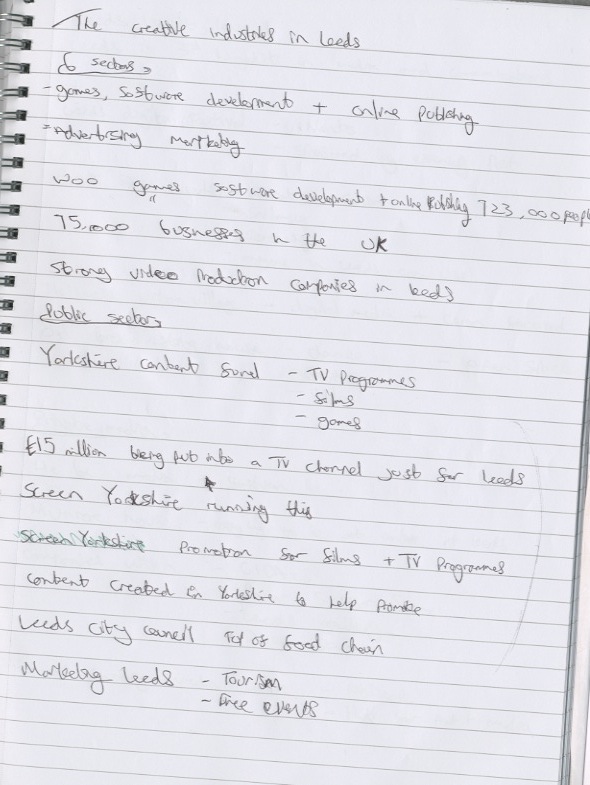 The creative industries in Leeds
6 sectors
- games, software development + online Publishing
- Advertising Martketing
games software development + online Publishing 723,000 peopl
75,000 businesses in the UK
Strong video Production companies in Leeds
Public sectors
Yorkshire content fund - TV Programmes
- films
- games
£15 million being put into a TV channel just for Leeds
Screen Yorkshire running this
Screen Yorkshire Promotion for films + TV Programmes
content created in Yorkshire to help Promote
Leeds city council Top of food chain
Marketing Leeds - Tourism
- Free events